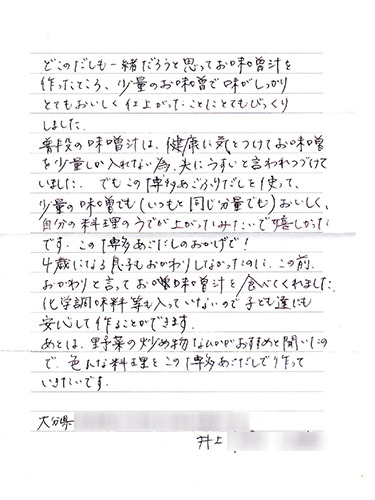 どこのだしも一緒だろうと思ってお味噌汁を
作ったところ、少量のお味噌で味がしっかり
とてもおいしく仕上がったことにとてもびっくり
しました。
普段の味噌汁は、健康に気をつけてお味噌
を少量しか入れない為、夫にうすいと言われつづけて
いました。でもこの博多あごふりだしを使って、
少量の味噌でも(いつもと同じ分量でも)おいしく、
自分の料理のうでが上がったみたいで嬉しかった
です。この博多あごだしのおかげで!
4歳になる息子もおかわりしなかったのに、この前、
おかわりと言ってお味噌汁を食べてくれました。
化学調味料等も入っていないので子ども達にも
安心して作ることができます。
あとは、野菜の炒め物なんかがおすすめと聞いたの
で、色んな料理をこの博多あごだしで作って
いきたいです。
大分県
井上